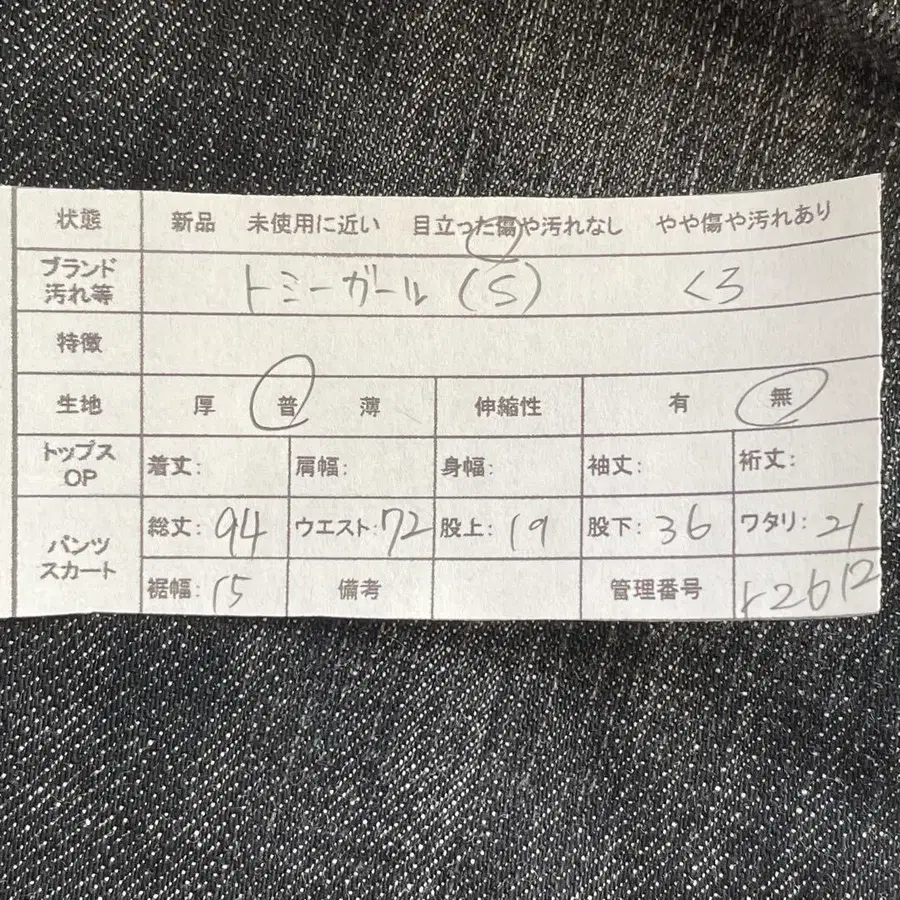 状態 新品 未使用に近い 目立った傷や汚れなし やや傷や汚れあり
ブランド
汚れ等 トミーガール (S) くろ
特徴
生地 厚 普 薄 伸縮性 有 無
トップス
OP 着丈: 肩幅: 身幅: 袖丈: 裄丈:
パンツ
スカート 総丈: 94 ウエスト: 72 股上: 19 股下: 36 ワタリ: 21
裾幅: 15 備考 管理番号 r2612